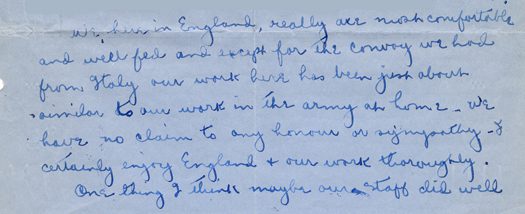 We here in England, really are most comfortable
and well fed and except for the convoy we had
from Italy our work here has been just about
similar to our work in the army at home - we
have no claim to any honour or sympathy - I
certainly enjoy England + our work thoroughly.
One thing I think maybe our staff did well